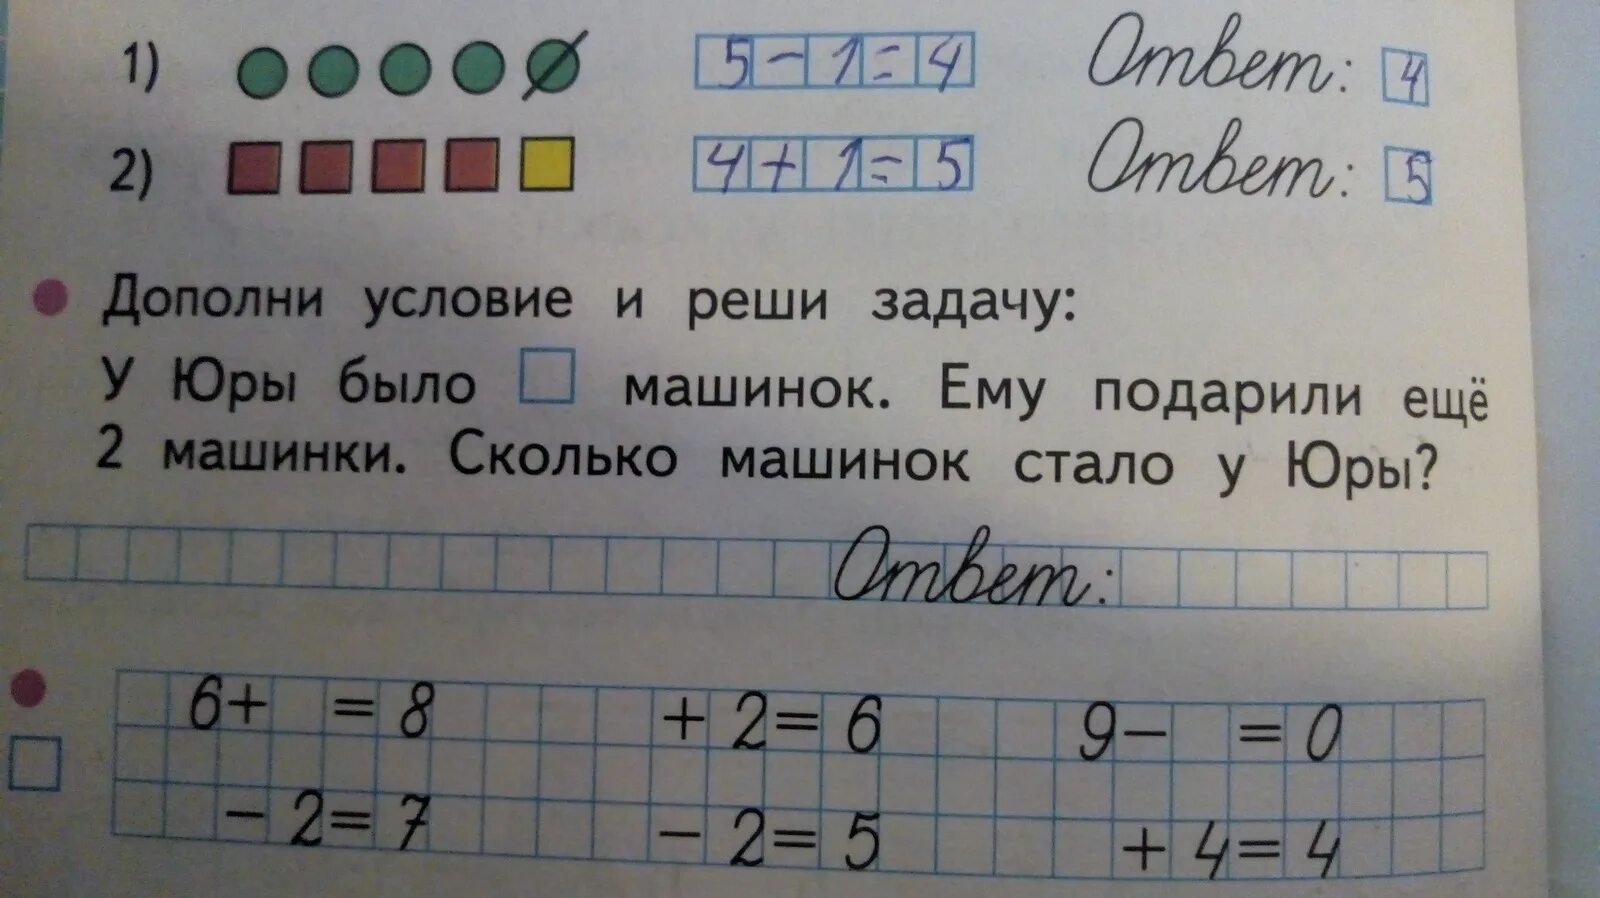 1) 5-1=4 Ответ: 4
2) 4+1=5 Ответ: 5
Дополни условие и реши задачу:
У Юры было машинок. Ему подарили ещё
2 машинки. Сколько машинок стало у Юры?
Ответ:
6+ =8 +2=6 9- =0
-2=7 -2=5 +4=4